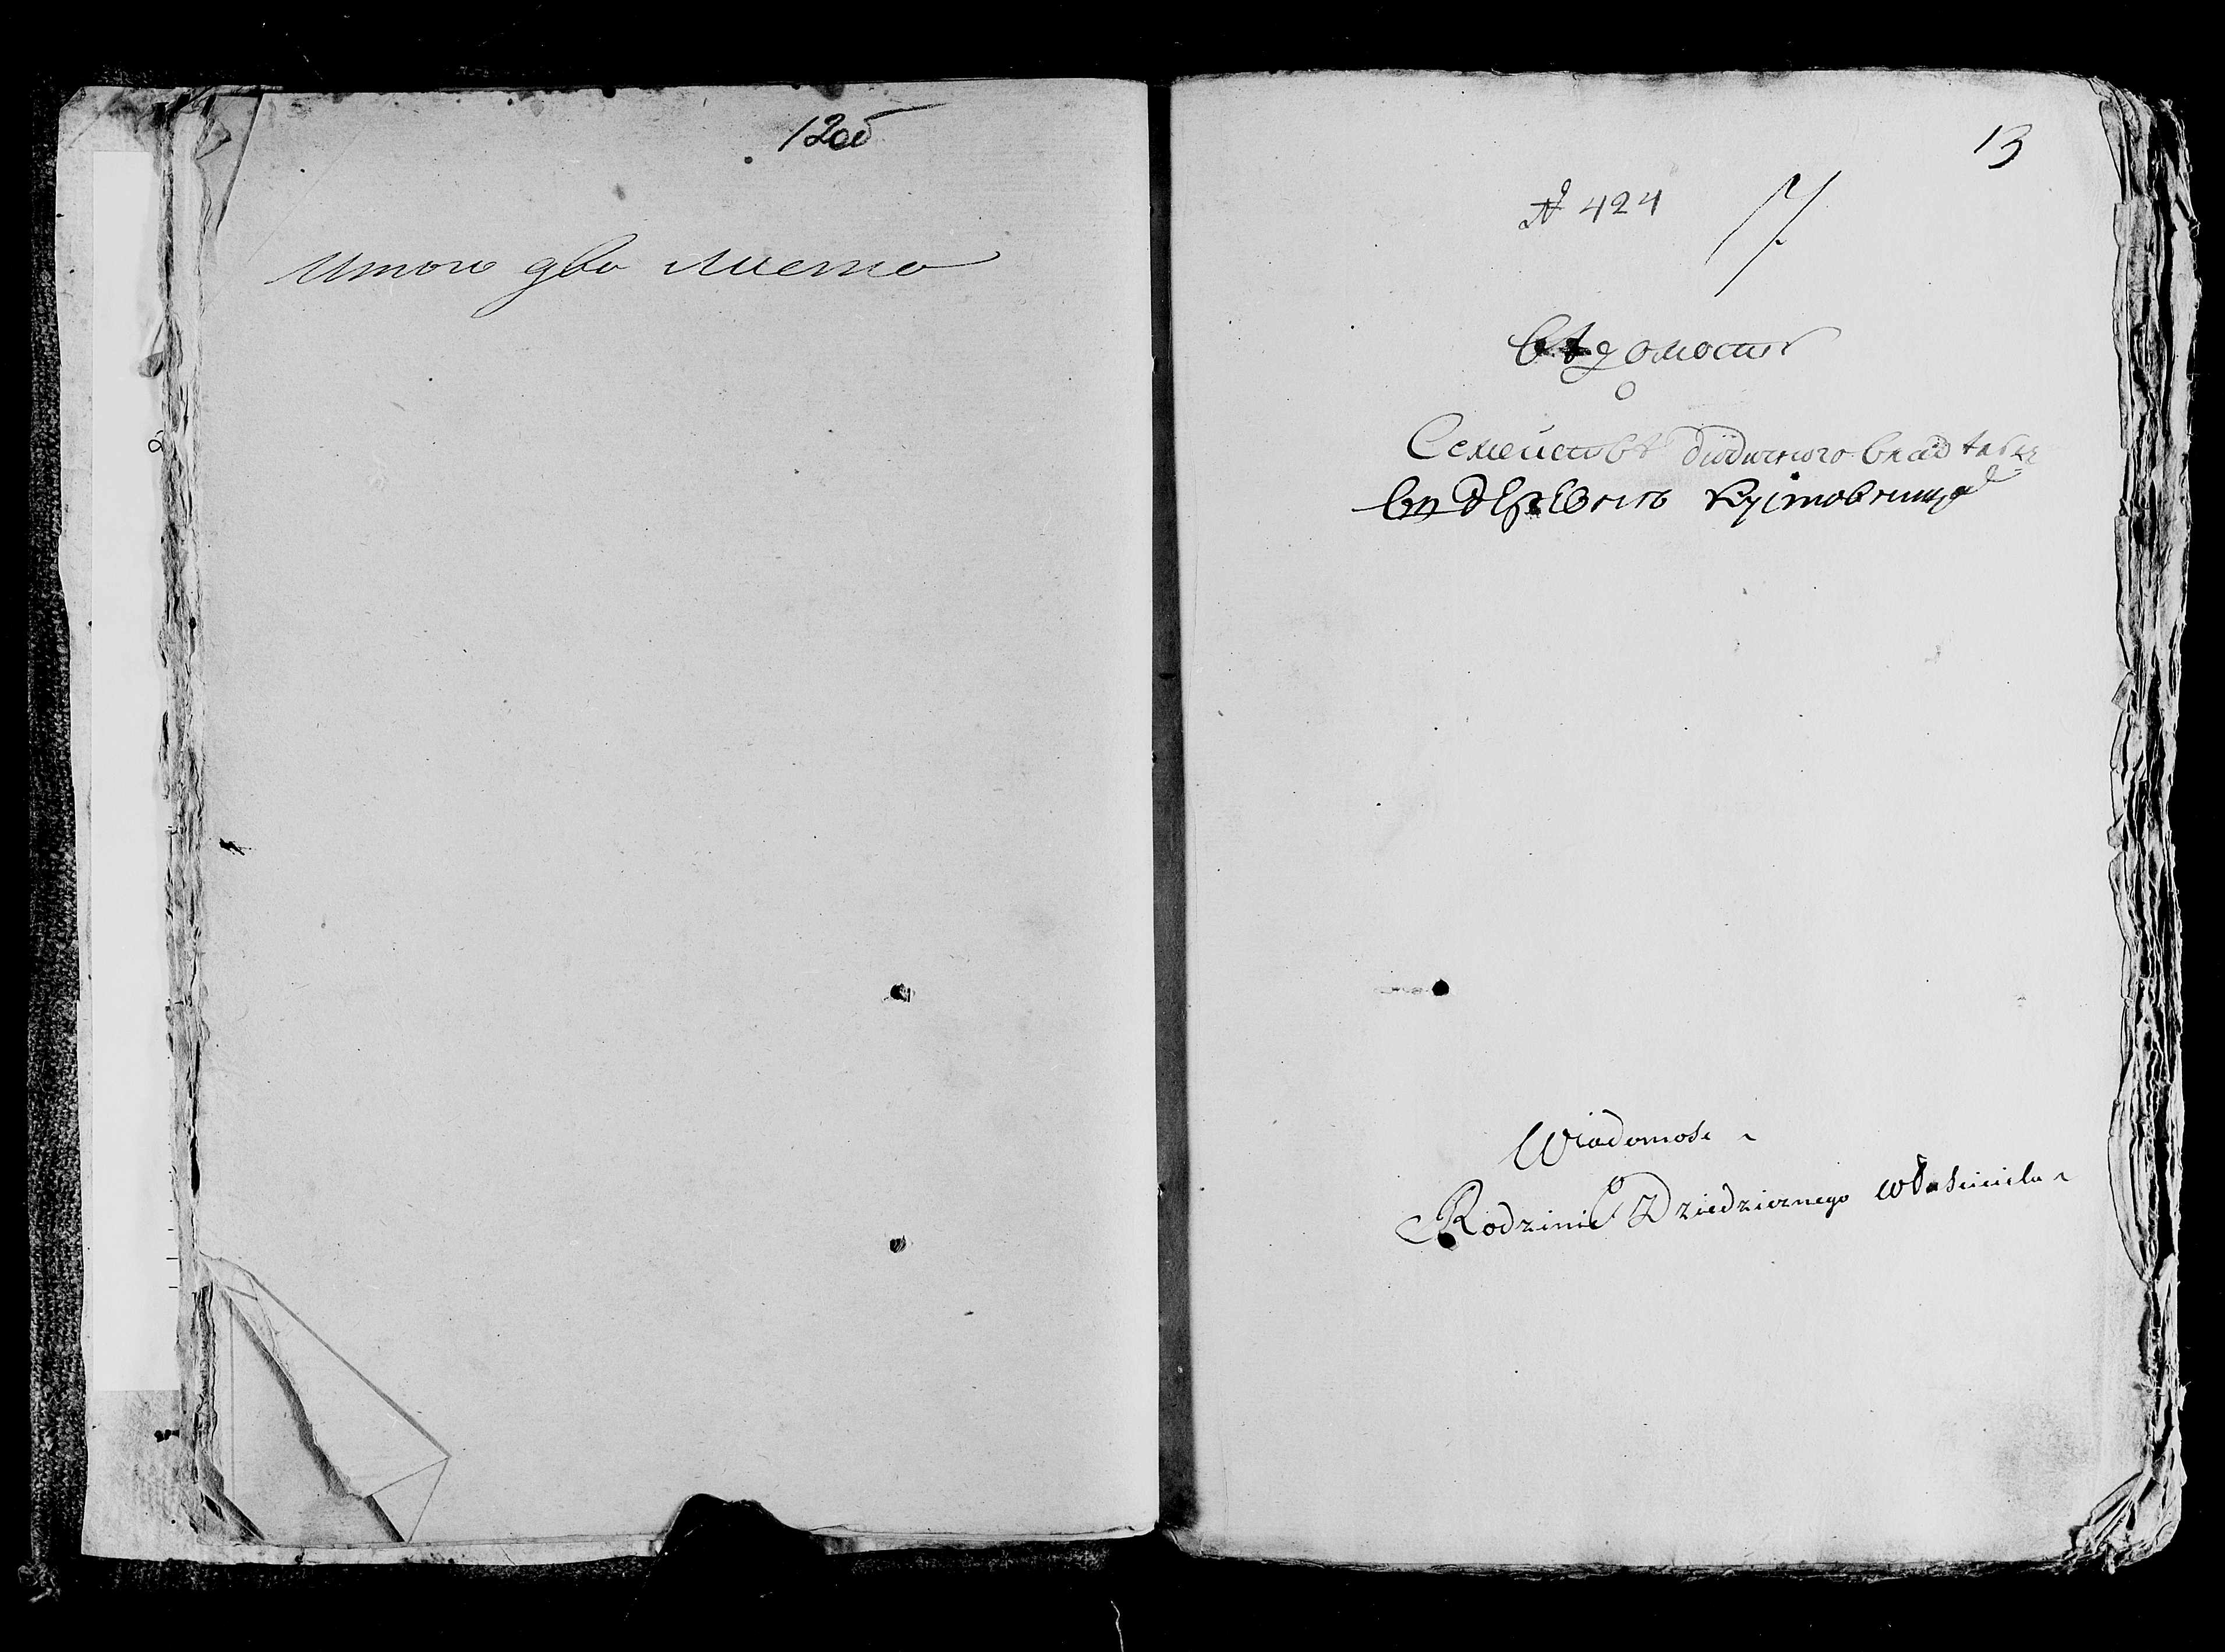 12об
Итого два листа
13
№ 424
7
Вѣдомость
О
Семействѣ дѣдичного владѣльца
въ деревнѣ Кустовница
Wiadomość
o
Rodzinie Dziedzicznego właściciela